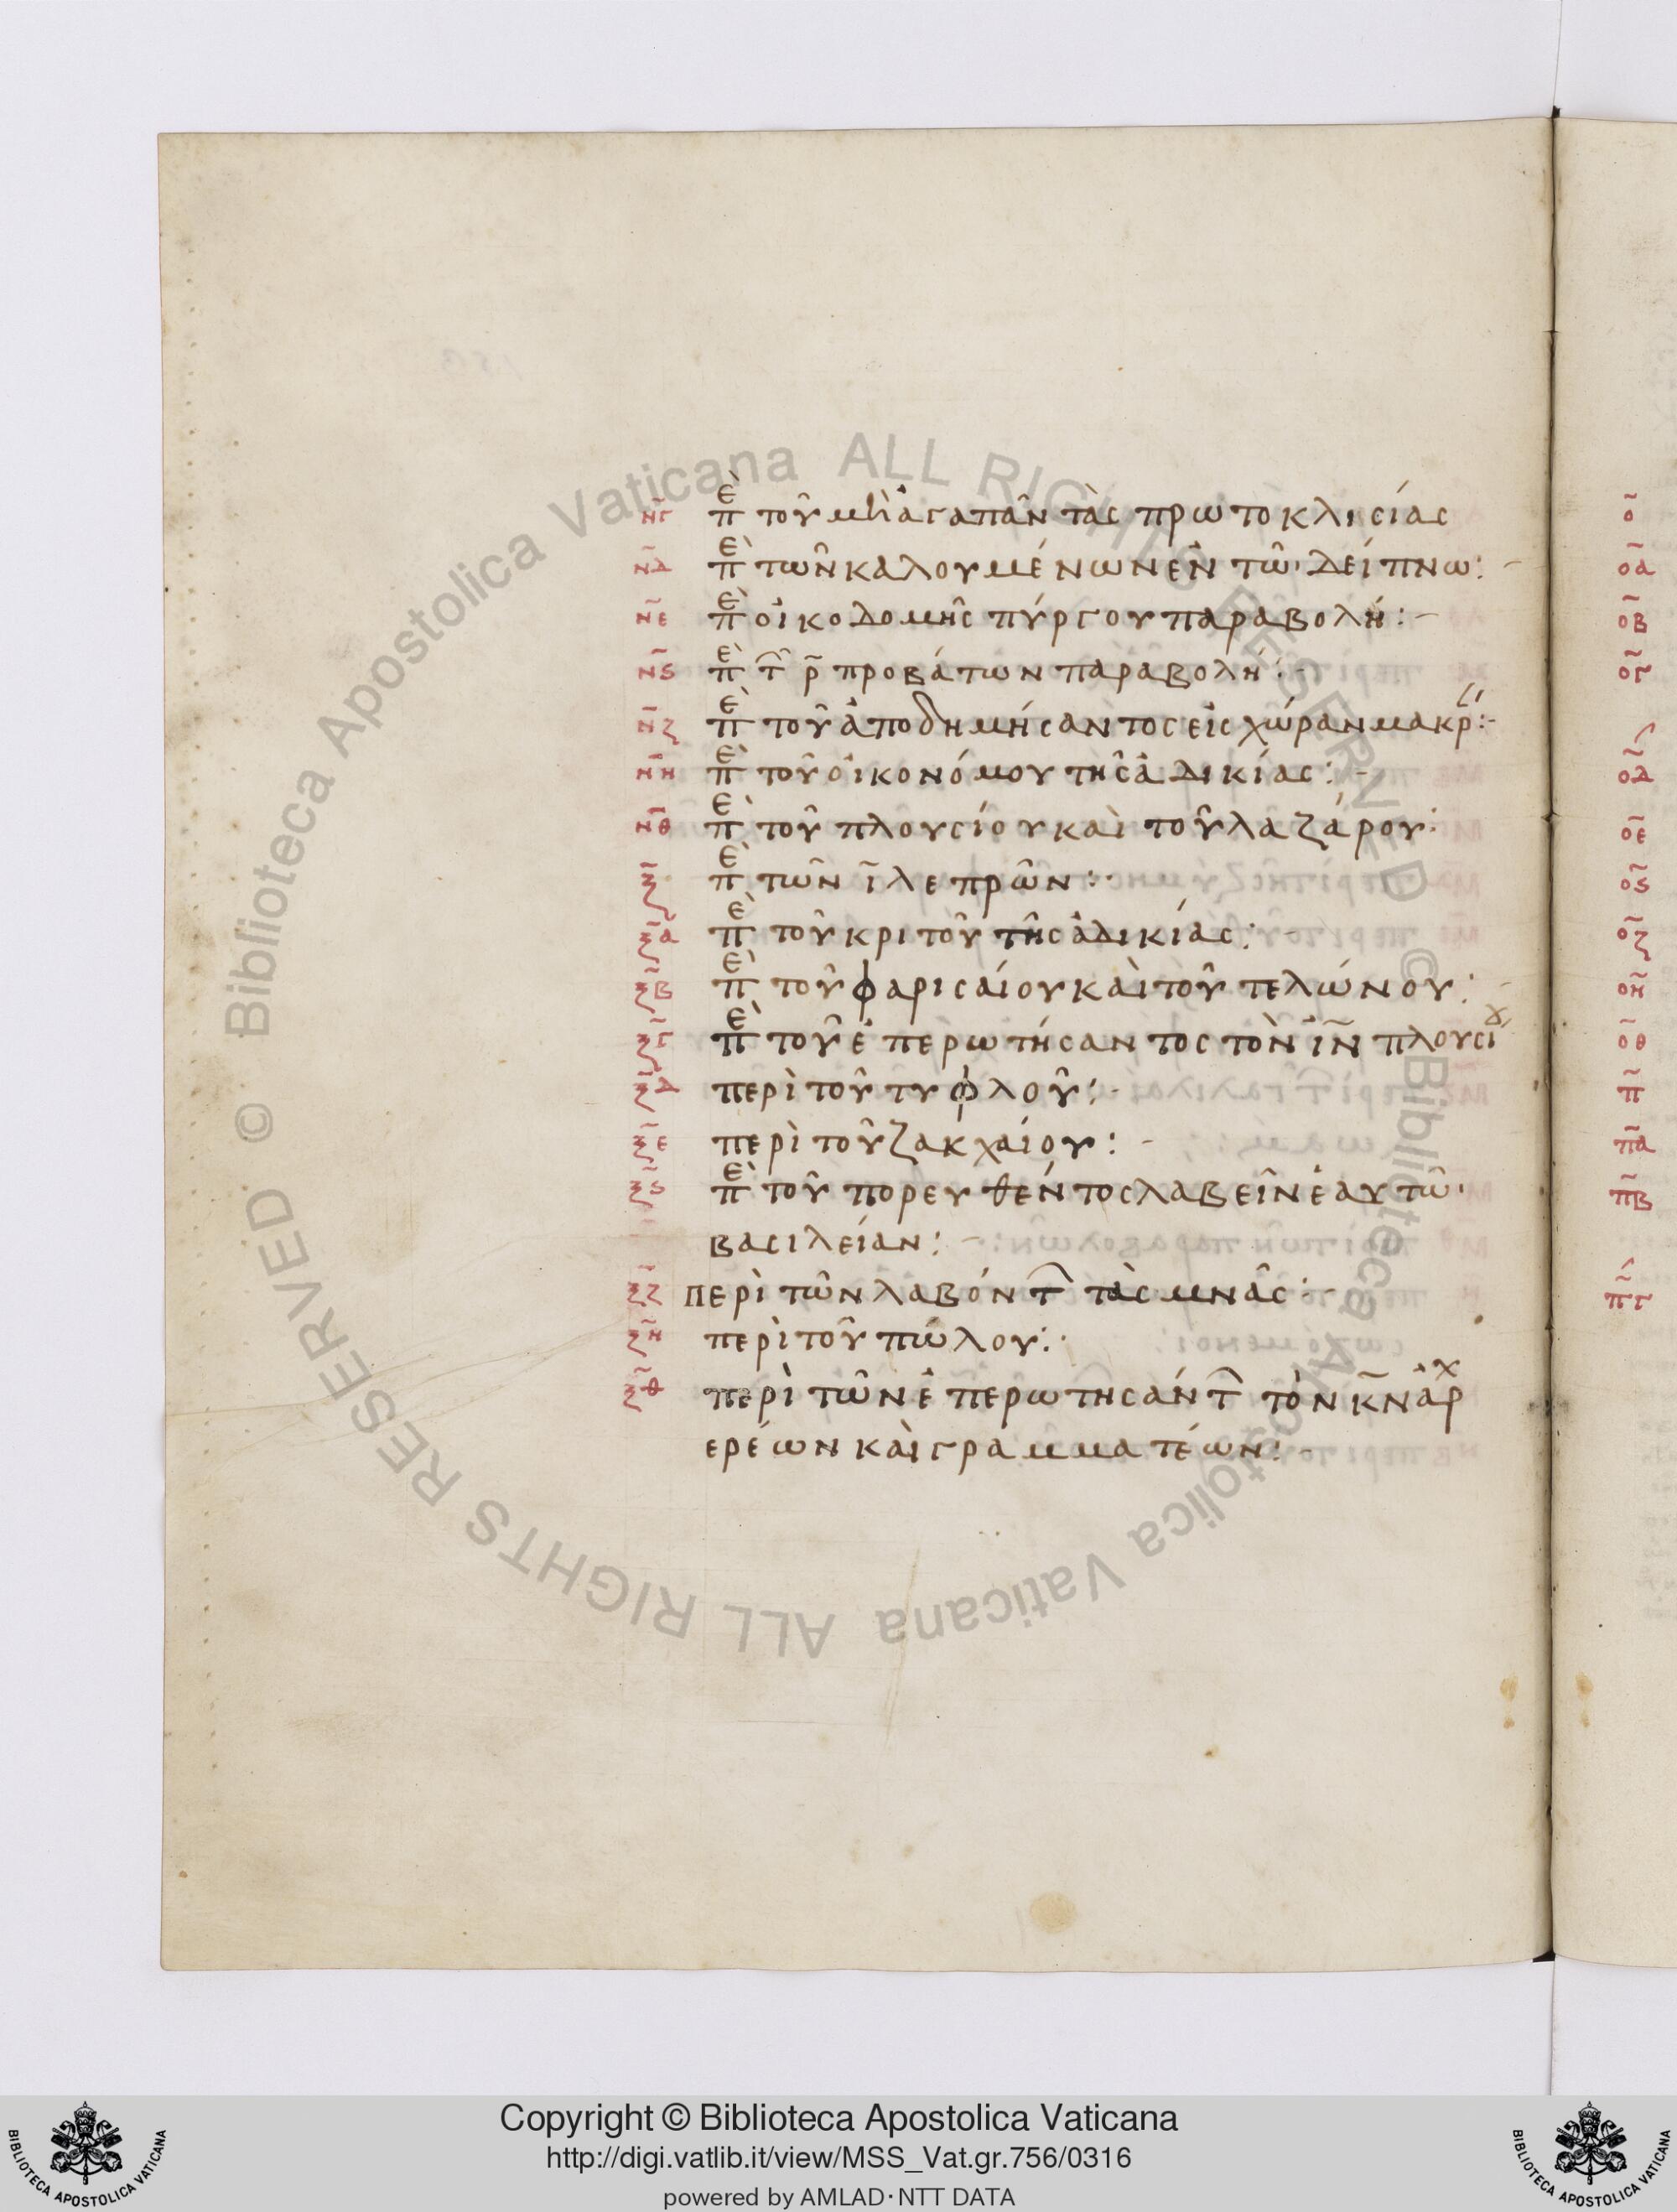 ν̄γ πὲ τοῦ μὴ ἀγαπᾶν τὰς πρωτοκλισίας
ν̄δ πὲ τῶν καλουμένων ἐν τῶ δείπνω:
ν̄ε πὲ οἰκοδομῆς πύργου παραβολή:-
ν̄ς πὲ τ̑ ρ̄ προβάτων παραβολή:-
ν̄ζ πὲ τοῦ ἀποδημήσαντος εἰς χώραν μακρ:-
ν̄η πὲ τοῦ οἰκονόμου τῆς ἀδικίας:-
ν̄θ πὲ τοῦ πλουσίου καὶ τοῦ λαζάρου:
ξ̄ πὲ τῶν ῑ λεπρῶν:
ξ̄α πὲ τοῦ κριτοῦ τῆς ἀδικίας:
ξ̄β πὲ τοῦ φαρισαίου καὶ τοῦ τελώνου:
ξ̄γ πὲ τοῦ ἐπερωτήσαντος τὸν ἰ̄ν πλουσίου
ξ̄δ περὶ τοῦ τυφλοῦ:-
ξ̄ε περὶ τοῦ ζακχαίου:-
ξ̄ς πὲ τοῦ πορευθέντος λαβεῖν ἑαυτῶ
βασιλείαν:-
ξ̄ζ περὶ τῶν λαβόντ̑ τὰς μνᾶς:-
ξ̄η περὶ τοῦ πώλου:
ξ̄θ περὶ τῶν ἐπερωτησάντ̑ τὸν κ̄ν ἀρχ
ερέων καὶ γραμματέων:-
ο̄
ο̄α
ο̄β
ο̄γ
ο̄δ
ο̄ε
ο̄ς
ο̄ζ
ο̄η
ο̄θ
π̄
π̄α
π̄β
π̄γ
© Biblioteca Apostolica Vaticana ALL RIGHTS RESERVED © Biblioteca Apostolica Vaticana ALL RIGHTS RESERVED
Copyright © Biblioteca Apostolica Vaticana
http://digi.vatlib.it/view/MSS_Vat.gr.756/0316
powered by AMLAD·NTT DATA
BIBLIOTECA APOSTOLICA VATICANA
BIBLIOTECA APOSTOLICA VATICANA